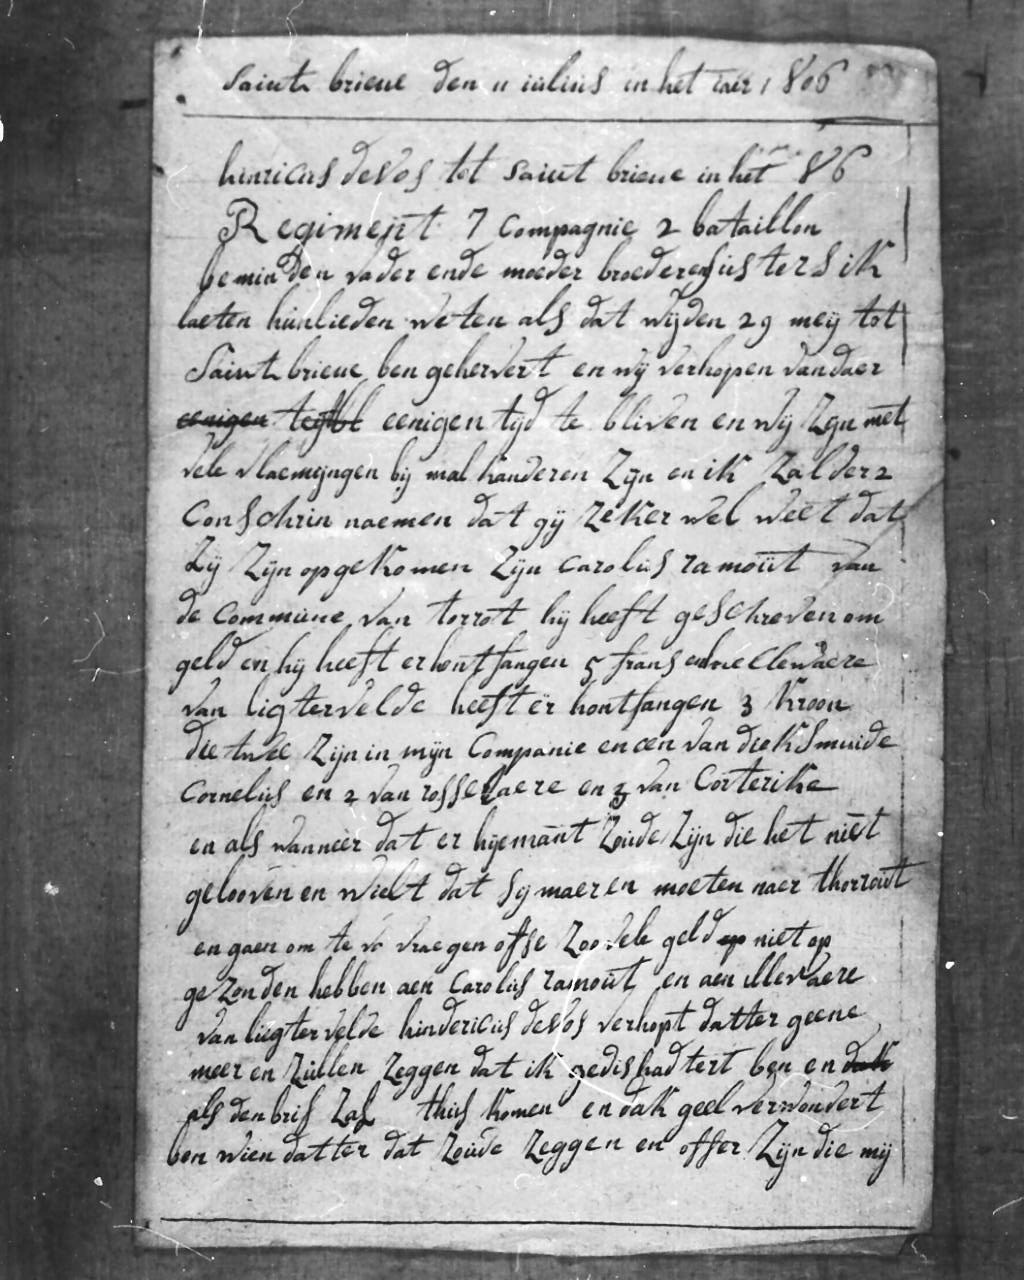 Saint brieue den 11 iulius in het iaer 1806
hinricus devos tot saint brieue in het 86
Regimeijnt 7 compagnie 2 bataillon
beminden vader ende moeder broeder en susters ik
laeten hunlieden weten als dat wij den 29 meij tot
Saint brieue ben gehervert en wij verhopen van daer
eenigen tijd te bliven en wij zijn met
vele vlaemijngen bij mal kanderen zijn en ik zal der 2
Conschrin naemen dat gij zeker wel weet dat
zij zijn op gekomen zijn carolus ramoüt van
de commüne van torrot hij heeft geschreven om
geld en hij heeft er hontfangen 5 frans en
van ligtervelde heeft er hontfangen 3 kroon
die twee zijn in mijn Companie en een van dieksmuide
Cornelius en 2 van rosselaere en 3 van Corterike
en als wanneer dat er hijemant zoude zijn die het niet
gelooven en wielt dat sy maer en moeten naer thorrout
en gaen om te vraegen offse zoo vele geld niet op
gezonden hebben aen Carolus ramoüt en aen illevaere
van liegtervelde hindericus devos verhopt datter geene
meer en züllen zeggen dat ik gedishadtert ben en
als den brif zal thuis komen en dak geel verwondert
ben wien datter dat zoude zeggen en offer zijn die mij